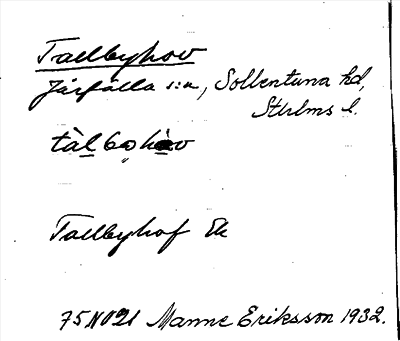 Tallbyhov
Järfälla s:n, Sollentuna hd,
Sthlms l.
Tallbyhof Ek
75 NO21 Manne Eriksson 1932.